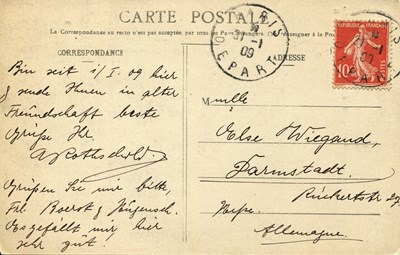 CARTE POSTALE
La Correspondance au recto n'est pas acceptée par tous les Pays Étrangers (Se renseigner à la Poste)
CORRESPONDANCE
ADRESSE
PARIS
31-1
09
DEPART
10
Bin seit 1/I. 09 hier
& sende Ihnen in alter
Freundschaft beste
Grüße Ihr
A Rothschild
Grüßen Sie mir bitte,
Frl.
Es gefällt mir hier
sehr gut!
Mlle
Else Wiegand,
Darmstadt.
Rückertstr
Hesse
Allemagne.